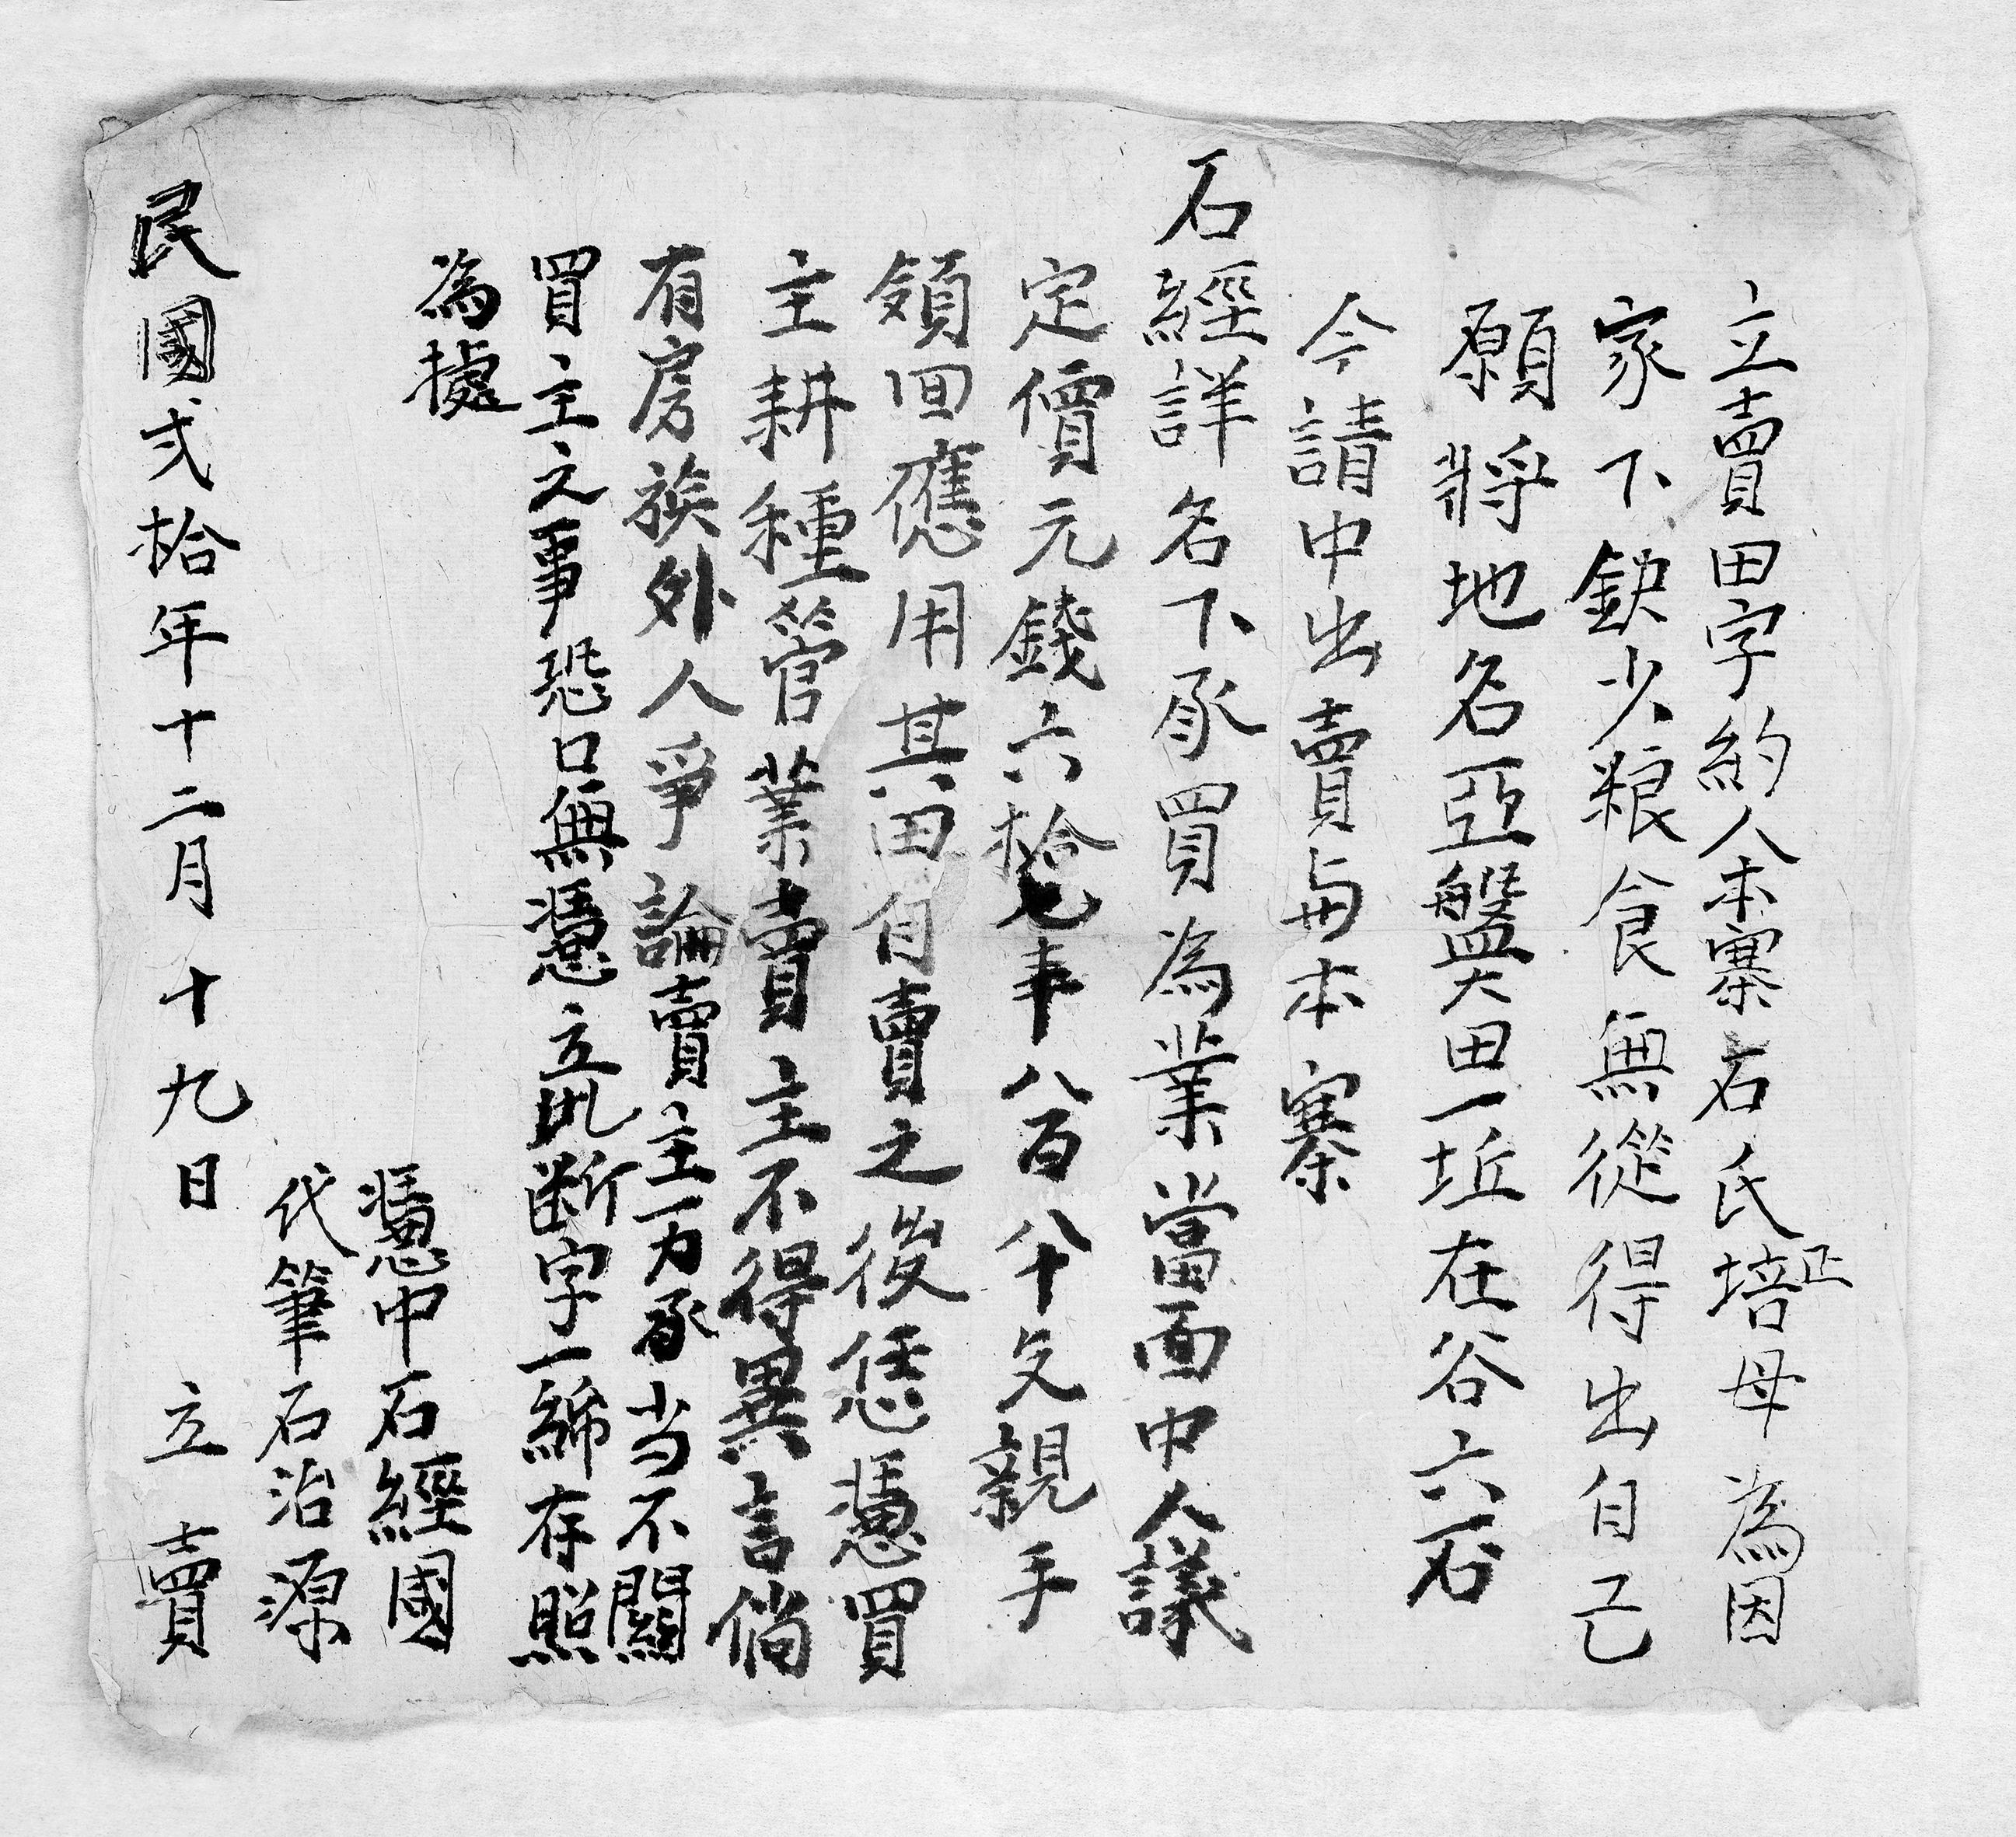 立賣田字約人本寨石氏培正母為因
家下缺少粮食無從得出自己
願將地名亞盤奠田一坵在谷六石
今請中出賣與本寨
石經詳名下承買為業當面中人議
定價元錢六拾七千八百八十文親手
領回應用其田自賣之後恁憑買
主耕種管業賣主不得異言倘
有房族外人爭論賣主一力承当不關
買主之事恐口無憑立此断字一締存照
為據
憑中石經國
代筆石治源
民國弍拾年十二月十九日 立賣